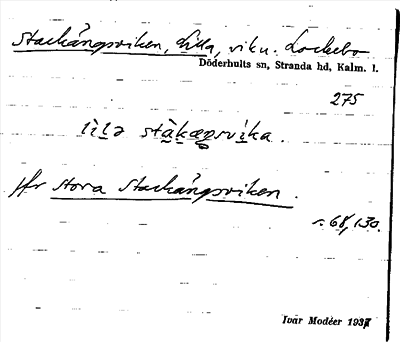 Stackängsviken, Lilla, viku. Lockebo
Döderhults sn, Stranda hd, Kalm. l.
275
lìlə stàkæŋsvìka.
jfr Stora Stackängsviken.
s. 68, 130.
Ivar Modéer 1937